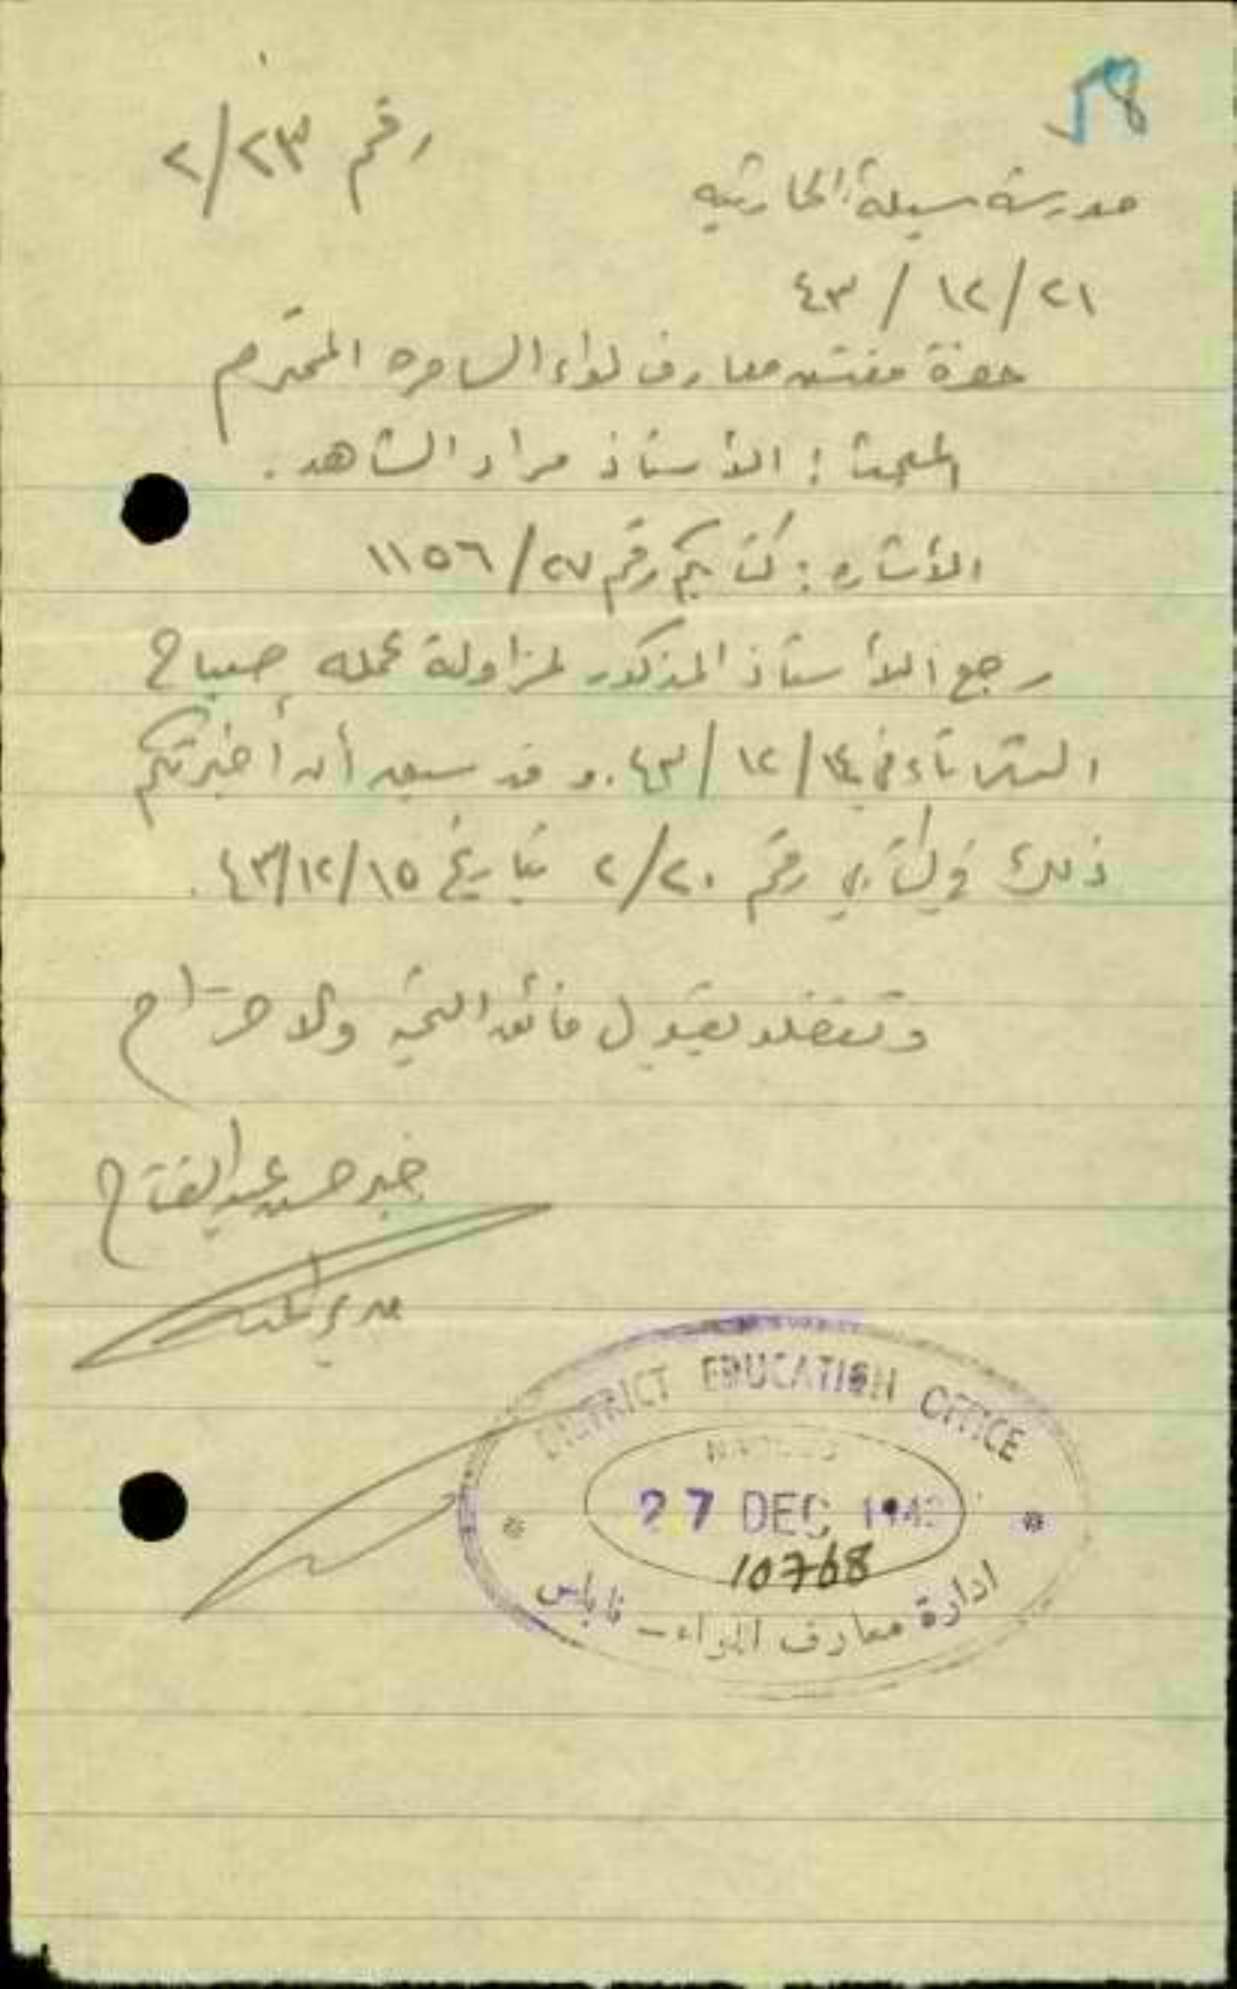 58
رقم ٢/٢٣
مدرسة سيلة الحارثيه
٤٣ / ١٢ / ٢١
حضرة مفتش معارف لواء السامره المحترم
المبحث : الأستاذ مراد الشاهد .
الأشاره : كتابكم رقم ١١٥٦/٢٧
رجع الأستاذ المذكور لمزاولة عمله صباح
الثلاثاء في ١٤ / ١٢ / ٤٣. و قد سبق أن أخبرتكم
ذلك في كتابي رقم ٢/٢٠ بتاريخ ٤٣/١٢/١٥ .
وتفضلو بقبول فائق التحيه والاحترام
حسن عبد الفتاح
DISTRICT EDUCATION OFFICE
NABLUS
27 DEC 194
10768
ادارة معارف اللواء - نابلس